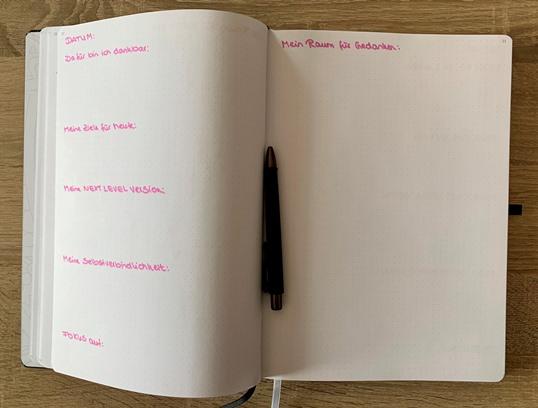 DATUM:
Dafür bin ich dankbar:
Meine Ziele für heute:
Meine NEXT LEVEL Version:
Meine Selbstverbindlichkeit:
Fokus auf:
Mein Raum für Gedanken: